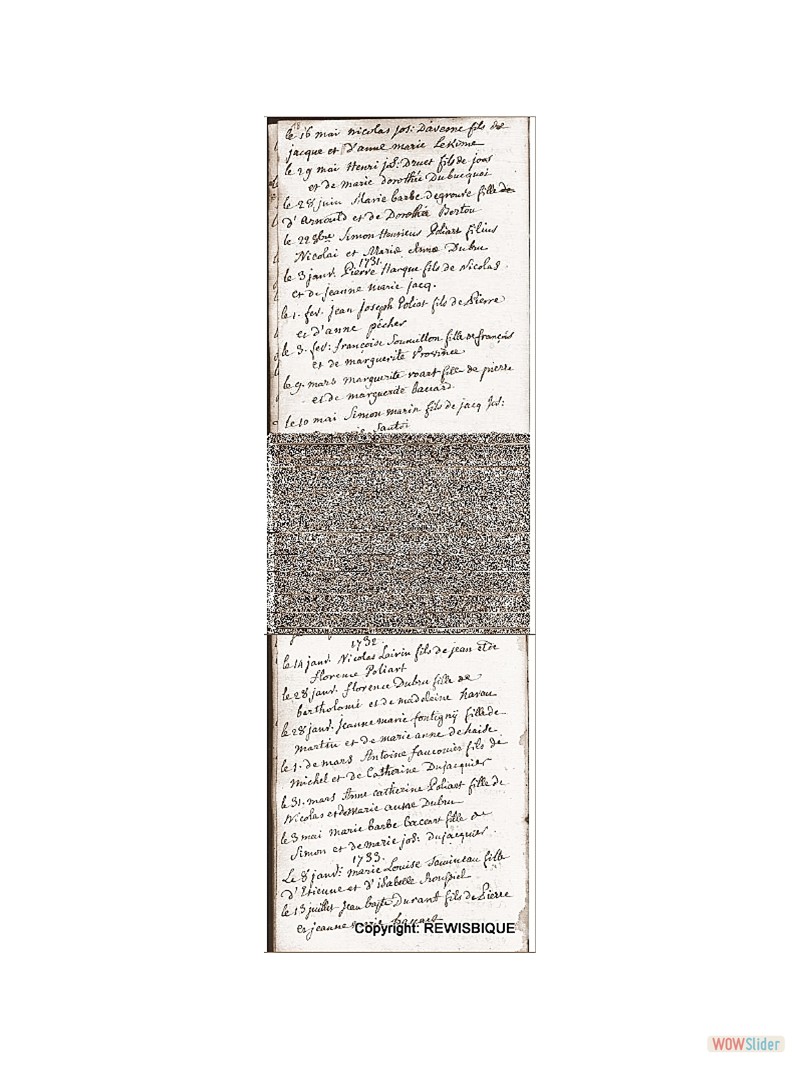 le 16 mai nicolas jos: Daverne fils de
jacque et d'anne marie Lekime
le 29 mai Henri jos: Druet fils de joas
et de marie dorothée Dubucquoi
le 28 juin Marie barbe degrouve fille de
d'Arnould et de Dorothée Bertou
le 22 8bre Simon Henricus Poliart filius
Nicolai et Mariæ Annæ Dubru
1731.
le 3 janv. Pierre Harque fils de Nicolas
et de jeanne marie jacq.
le 1. fev. jean joseph Poliart fils de Pierre
et d'anne pécher
le 3. fev: françoise fille de françois
et de marguerite Province
le 9. mars marguerite roart fille de pierre
et de marguerite bauard
le 10 mai Simon marin fils de jacq jos:
Santoi
1732.
le 14 janv. Nicolas Lairin fils de jean et de
florence Poliart
le 28 janv. florence Dubru fille de
bertholomé et de madeleine havau
le 28 janv. Jeanne marie fontigny fille de
martin et de marie anne dehaise
le 1. de mars Antoine fauconier fils de
michel et de Catherine Dujacquier
le 31. mars Anne catherine Poliart fille de
Nicolas et de Marie anne Dubru
le 3 mai marie barbe baccart fille de
Simon et de marie jos: dujacquier
1733.
Le 8 janv: marie Louise fille
d'Etienne et d'isabelle
le 13 juillet Jean bapte Durant fils de Pierre
et jeanne marie
Copyright: REWISBIQUE
WOWSlider